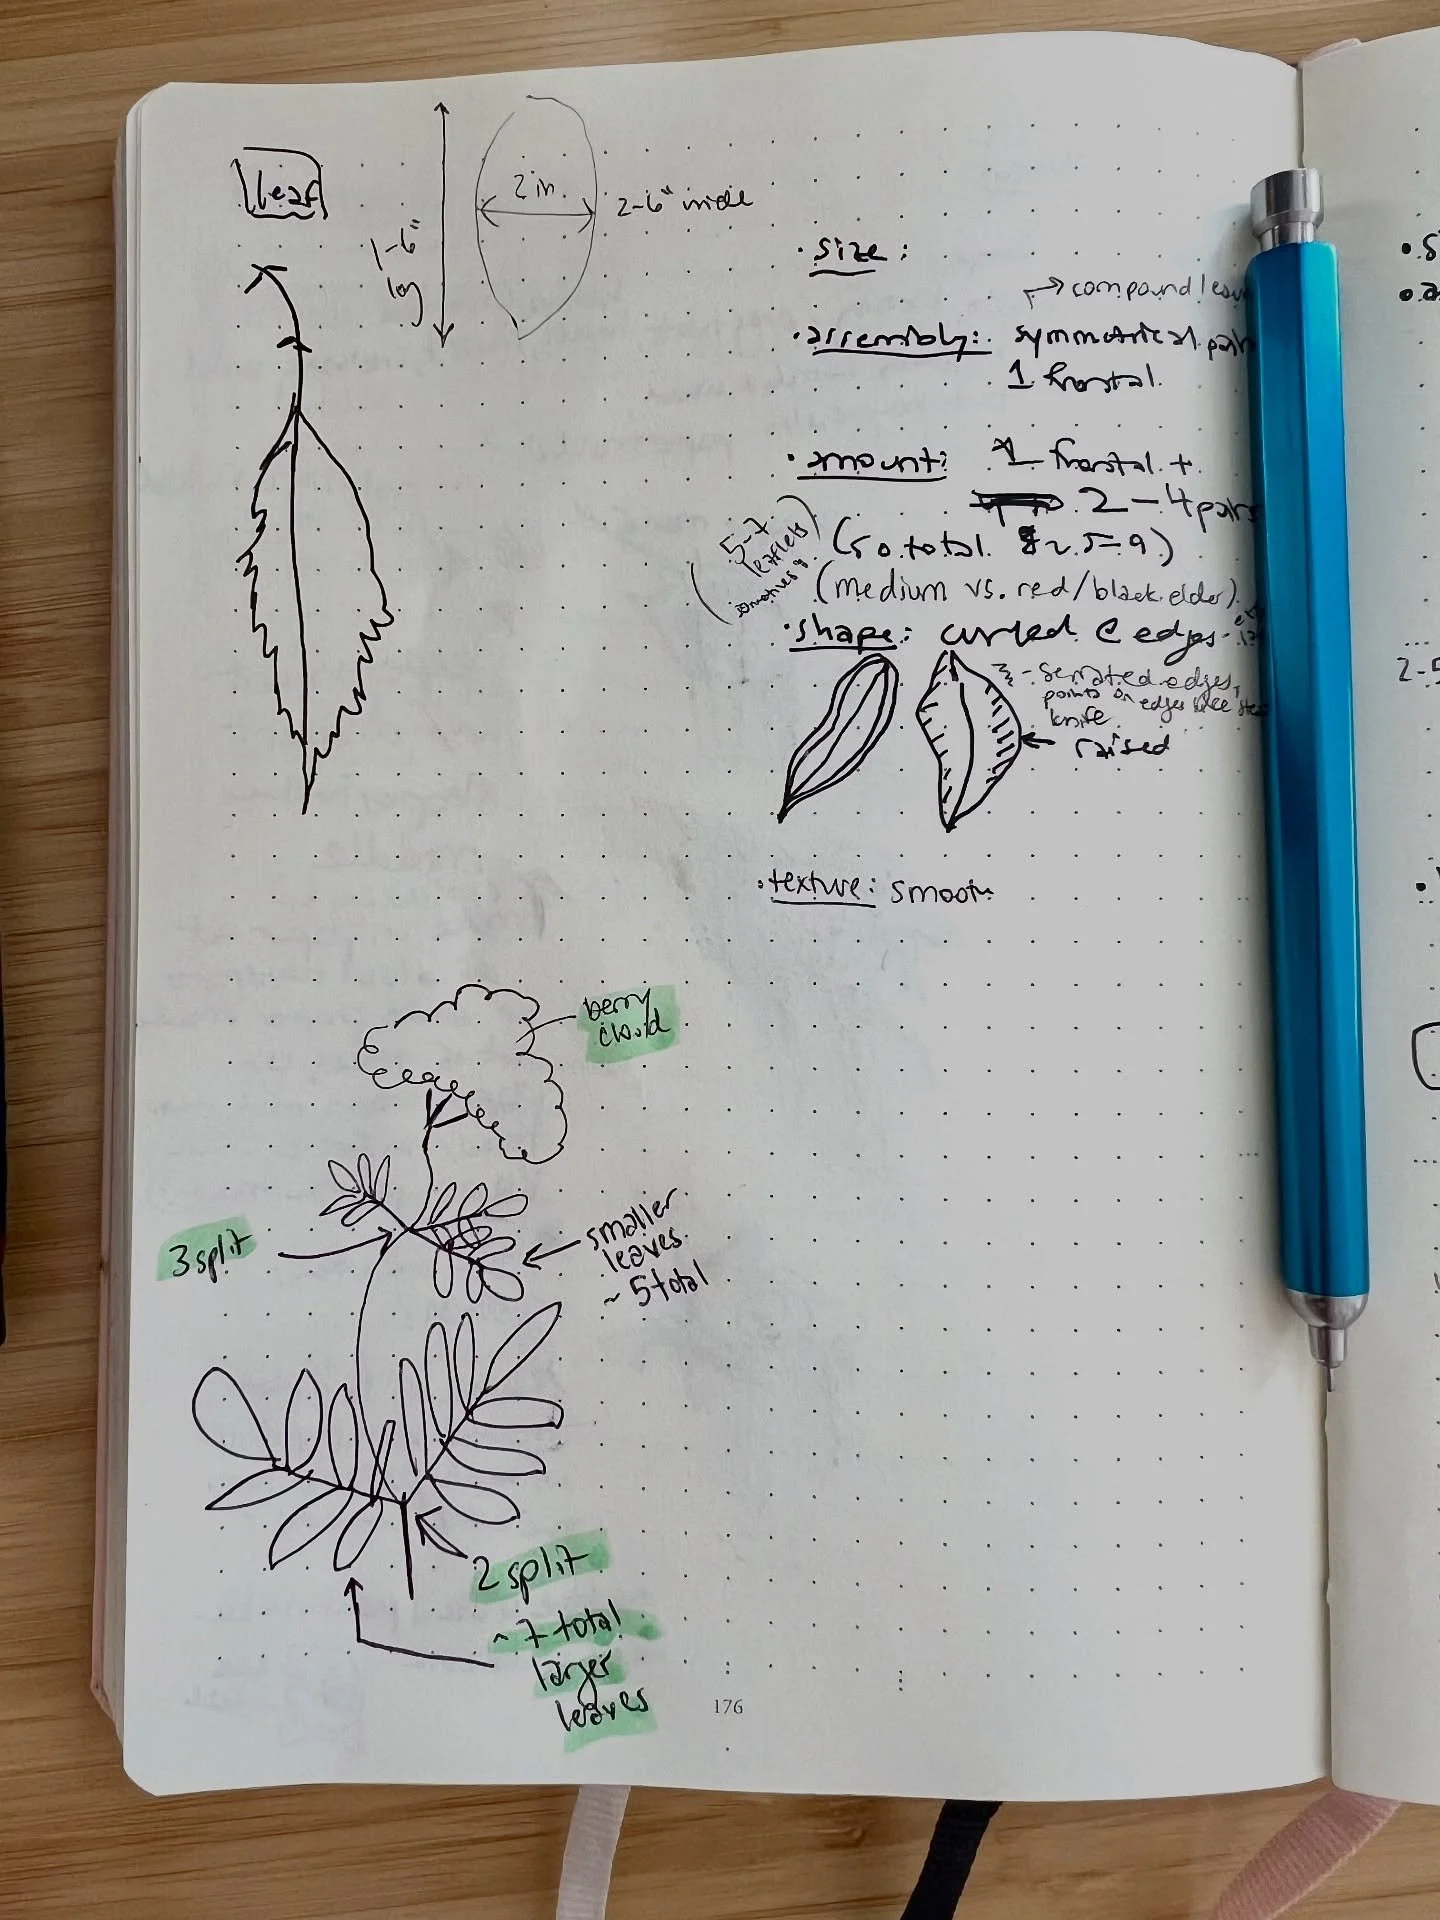 leaf
1-6"
long
2 in.
2-6" wide
• size:
→ compound leav
• assembly: symmetrical pair
1 frontal.
• amount: 1 frontal +
2-4 pairs
(5-7
leaflets
sometimes)
(so total 5=9)
(medium vs. red/black elder)
• shape: curled @ edges
- serrated edges,
points on edges like
knife
← raised
• texture: smooth
berry
cloud
3 split
smaller
leaves
~ 5 total
2 split
~ 7 total
larger
leaves
176
2-5